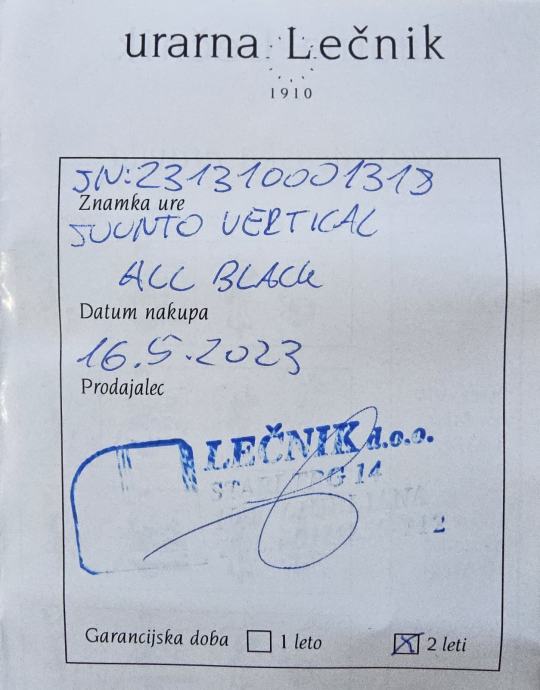 urarna Lečnik
1910
SN: 231310001318
Znamka ure
SUUNTO VERTICAL
ALL BLACK
Datum nakupa
16.5.2023
Prodajalec
LEČNIK d.o.o.
STARI TRG 14
Garancijska doba 1 leto 2 leti